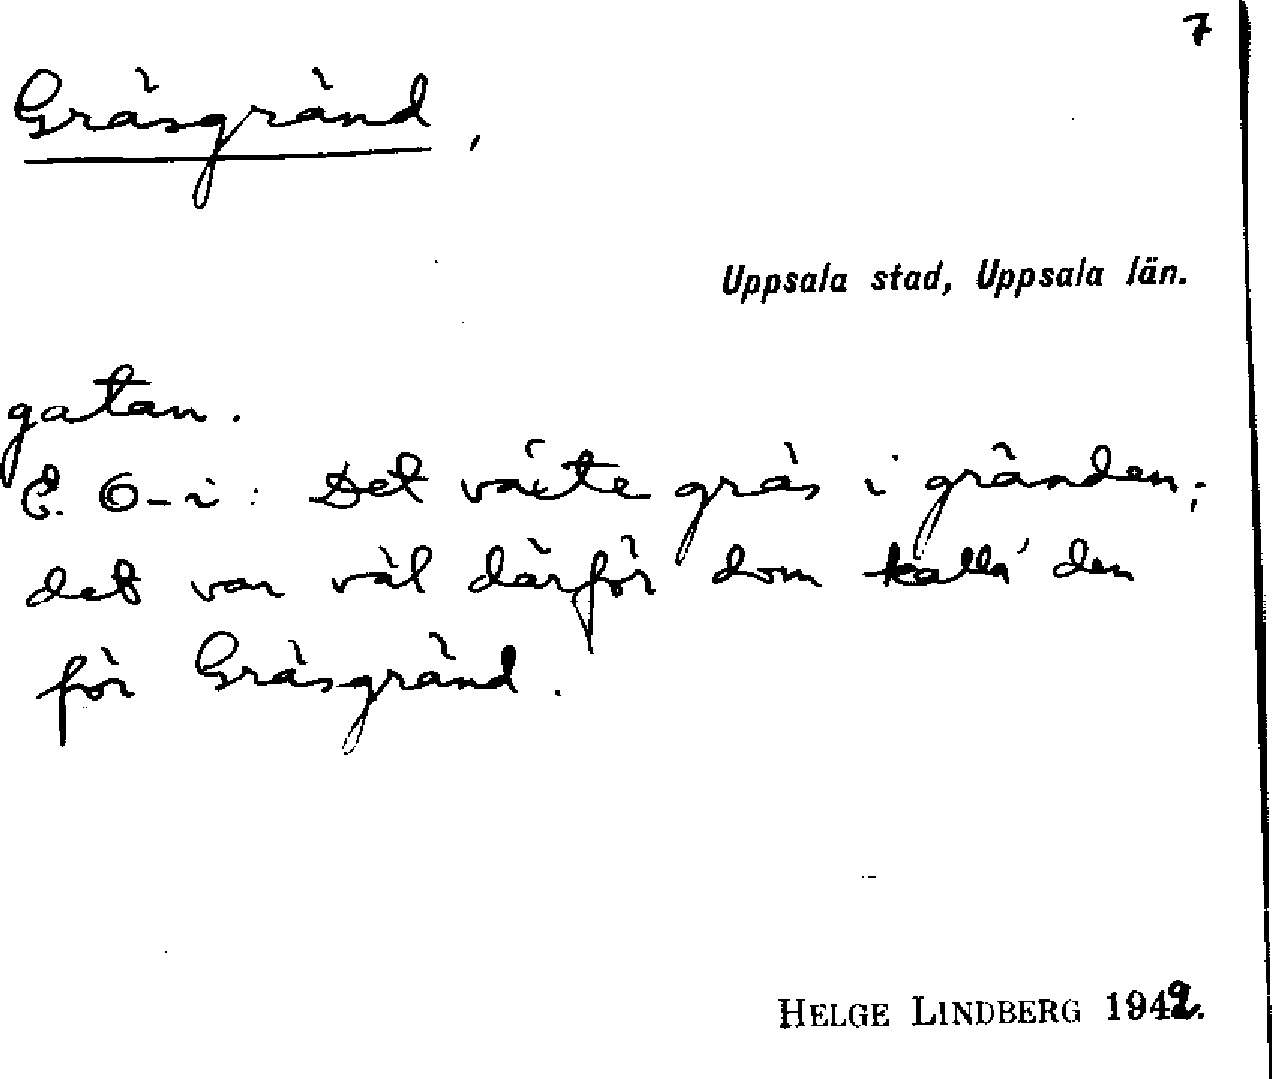 7
Gräsgränd,
Uppsala stad, Uppsala län.
gatan.
E. 6-i: Det växte gräs i gränden;
det var väl därför dom kalla' den
för Gräsgränd.
HELGE LINDBERG 1942.